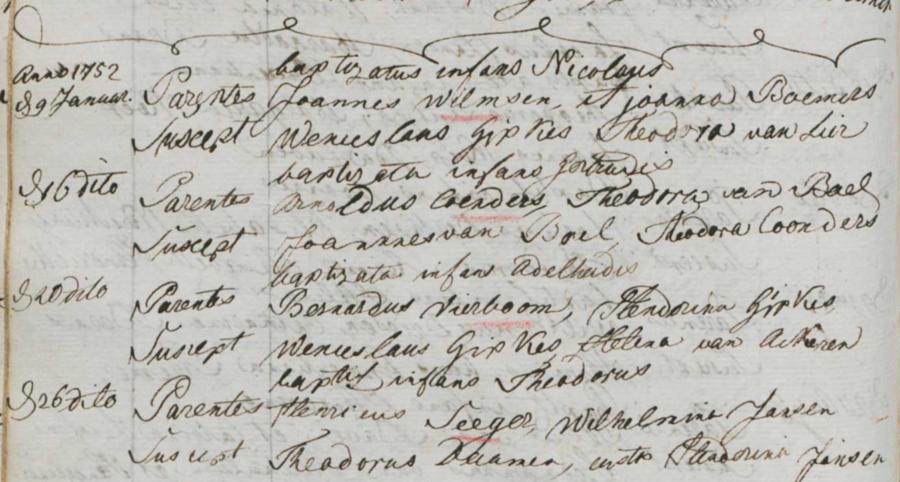 Anno 1752
baptizatus infans Nicolaus
d 9 Januar. Parentes Joannes Wilmsen, et joanna Boemers
Suscept Wenceslaus Gipkes Theodora van Lier
baptizata infans Gertrudis
d 16 dito Parentes Arnoldus Coenders, Theodora van Bael
Suscept Joannes van Boel, Theodora Coonders
baptizata infans Adelheidis
d 20 dito Parentes Bernardus Vierboom, Hendorina Gipkes
Suscept Wenceslaus Gipkes, Helena van Ackeren
baptis infans Theodorus
d 26 dito Parentes Henricus Seeger, Wilhelmina Jansen
Suscept Theodorus Daamen, Hendorina Jansen